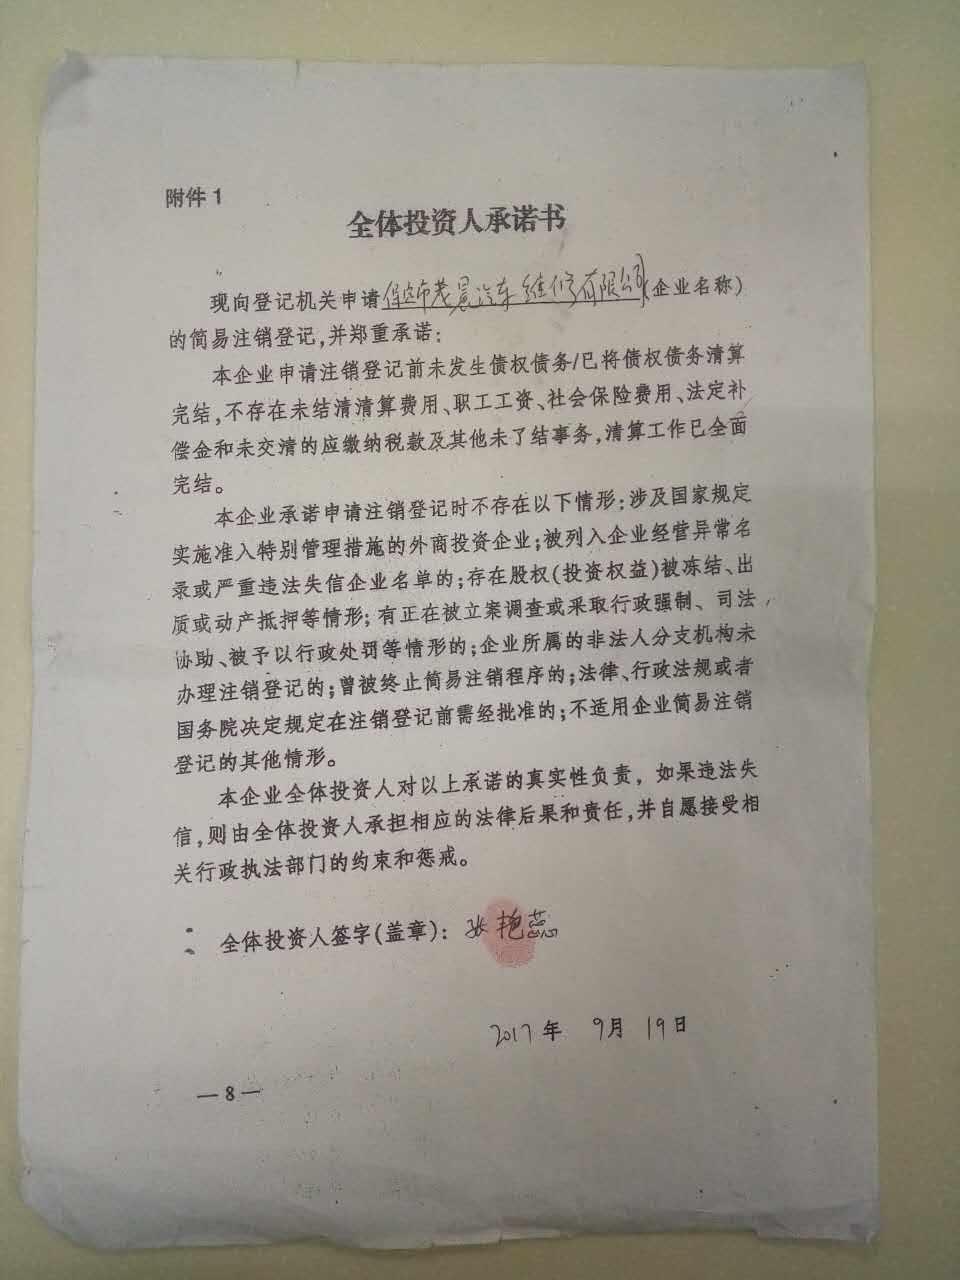 附件1
全体投资人承诺书
现向登记机关申请保定市茂晨汽车维修有限公司(企业名称)
的简易注销登记,并郑重承诺:
本企业申请注销登记前未发生债权债务/已将债权债务清算
完结,不存在未结清清算费用、职工工资、社会保险费用、法定补
偿金和未交清的应缴纳税款及其他未了结事务,清算工作已全面
完结。
本企业承诺申请注销登记时不存在以下情形:涉及国家规定
实施准入特别管理措施的外商投资企业;被列入企业经营异常名
录或严重违法失信企业名单的;存在股权(投资权益)被冻结、出
质或动产抵押等情形;有正在被立案调查或采取行政强制、司法
协助、被予以行政处罚等情形的;企业所属的非法人分支机构未
办理注销登记的;曾被终止简易注销程序的;法律、行政法规或者
国务院决定规定在注销登记前需经批准的;不适用企业简易注销
登记的其他情形。
本企业全体投资人对以上承诺的真实性负责,如果违法失
信,则由全体投资人承担相应的法律后果和责任,并自愿接受相
关行政执法部门的约束和惩戒。
全体投资人签字(盖章):张艳蕊
2017年 9月 19日
—8—